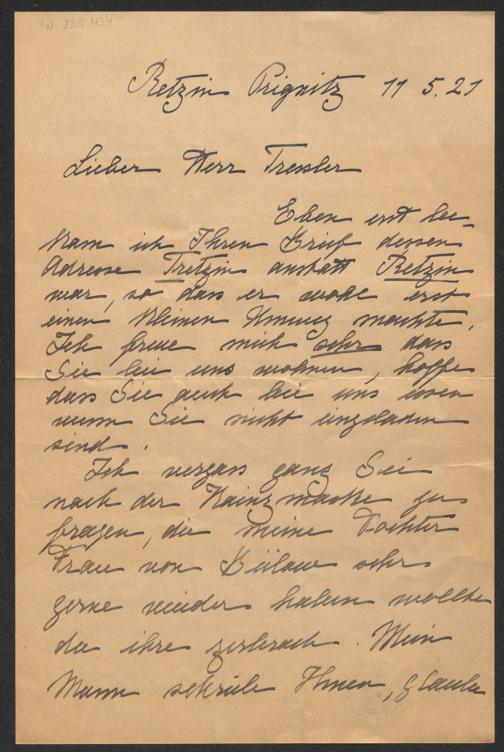 I.N. 225.434
Retzin Prignitz 11 5.21
Lieber Herr Tressler
Eben erst be-
kam ich Ihren Brief dessen
Adresse Tretzin anstatt Retzin
war, so dass er wohl erst
einen kleinen Umweg machte.
Ich freue mich sehr dass
Sie bei uns wohnen, hoffe
dass Sie auch bei uns essen
wenn Sie nicht eingeladen
sind.
Ich vergass ganz Sie
nach der Kainzmaske zu
fragen, die meine Tochter
Frau von Bülow sehr
gerne wieder haben wollte
da ihre zerbrach. Mein
Mann schrieb Ihnen, glaube